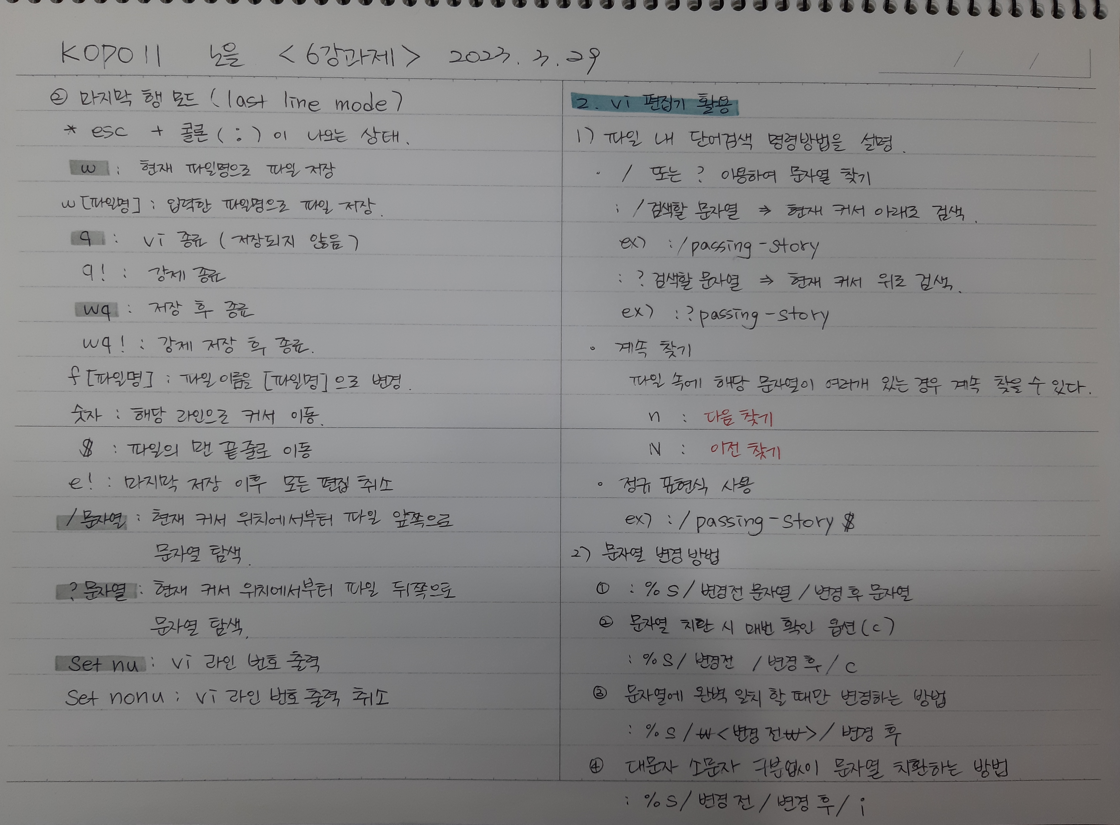 KOPO11 노을 <6강과제> 2023.3.29
② 마지막 행 모드 (last line mode)
* esc + 콜론(:)이 나오는 상태.
w : 현재 파일명으로 파일 저장
w[파일명] : 입력한 파일명으로 파일 저장.
q : vi 종료 (저장되지 않음)
q! : 강제 종료
wq : 저장 후 종료
wq! : 강제 저장 후 종료.
f[파일명] : 파일이름을 [파일명]으로 변경.
숫자 : 해당 라인으로 커서 이동.
$ : 파일의 맨 끝줄로 이동
e! : 마지막 저장 이후 모든 편집 취소
/문자열 : 현재 커서 위치에서부터 파일 앞쪽으로
문자열 탐색.
?문자열 : 현재 커서 위치에서부터 파일 뒤쪽으로
문자열 탐색.
Set nu : vi 라인 번호 출력
Set nonu : vi 라인 번호 출력 취소
2. vi 편집기 활용
1) 파일 내 단어검색 명령방법을 설명.
· / 또는 ? 이용하여 문자열 찾기
: /검색할 문자열 ⇒ 현재 커서 아래로 검색.
ex) :/passing-story
: ?검색할 문자열 ⇒ 현재 커서 위로 검색.
ex) :?passing-story
· 계속 찾기
파일 속에 해당 문자열이 여러개 있는 경우 계속 찾을 수 있다.
n : 다음 찾기
N : 이전 찾기
· 정규 표현식 사용
ex) :/passing-story$
2) 문자열 변경 방법
① : %s/변경전 문자열/변경 후 문자열
② 문자열 치환 시 매번 확인 옵션(c)
: %s/변경전 /변경 후/c
③ 문자열에 완벽 일치 할 때만 변경하는 방법
: %s/₩<변경 전₩>/변경 후
④ 대문자 소문자 구분없이 문자열 치환하는 방법
: %s/변경 전/변경 후/i